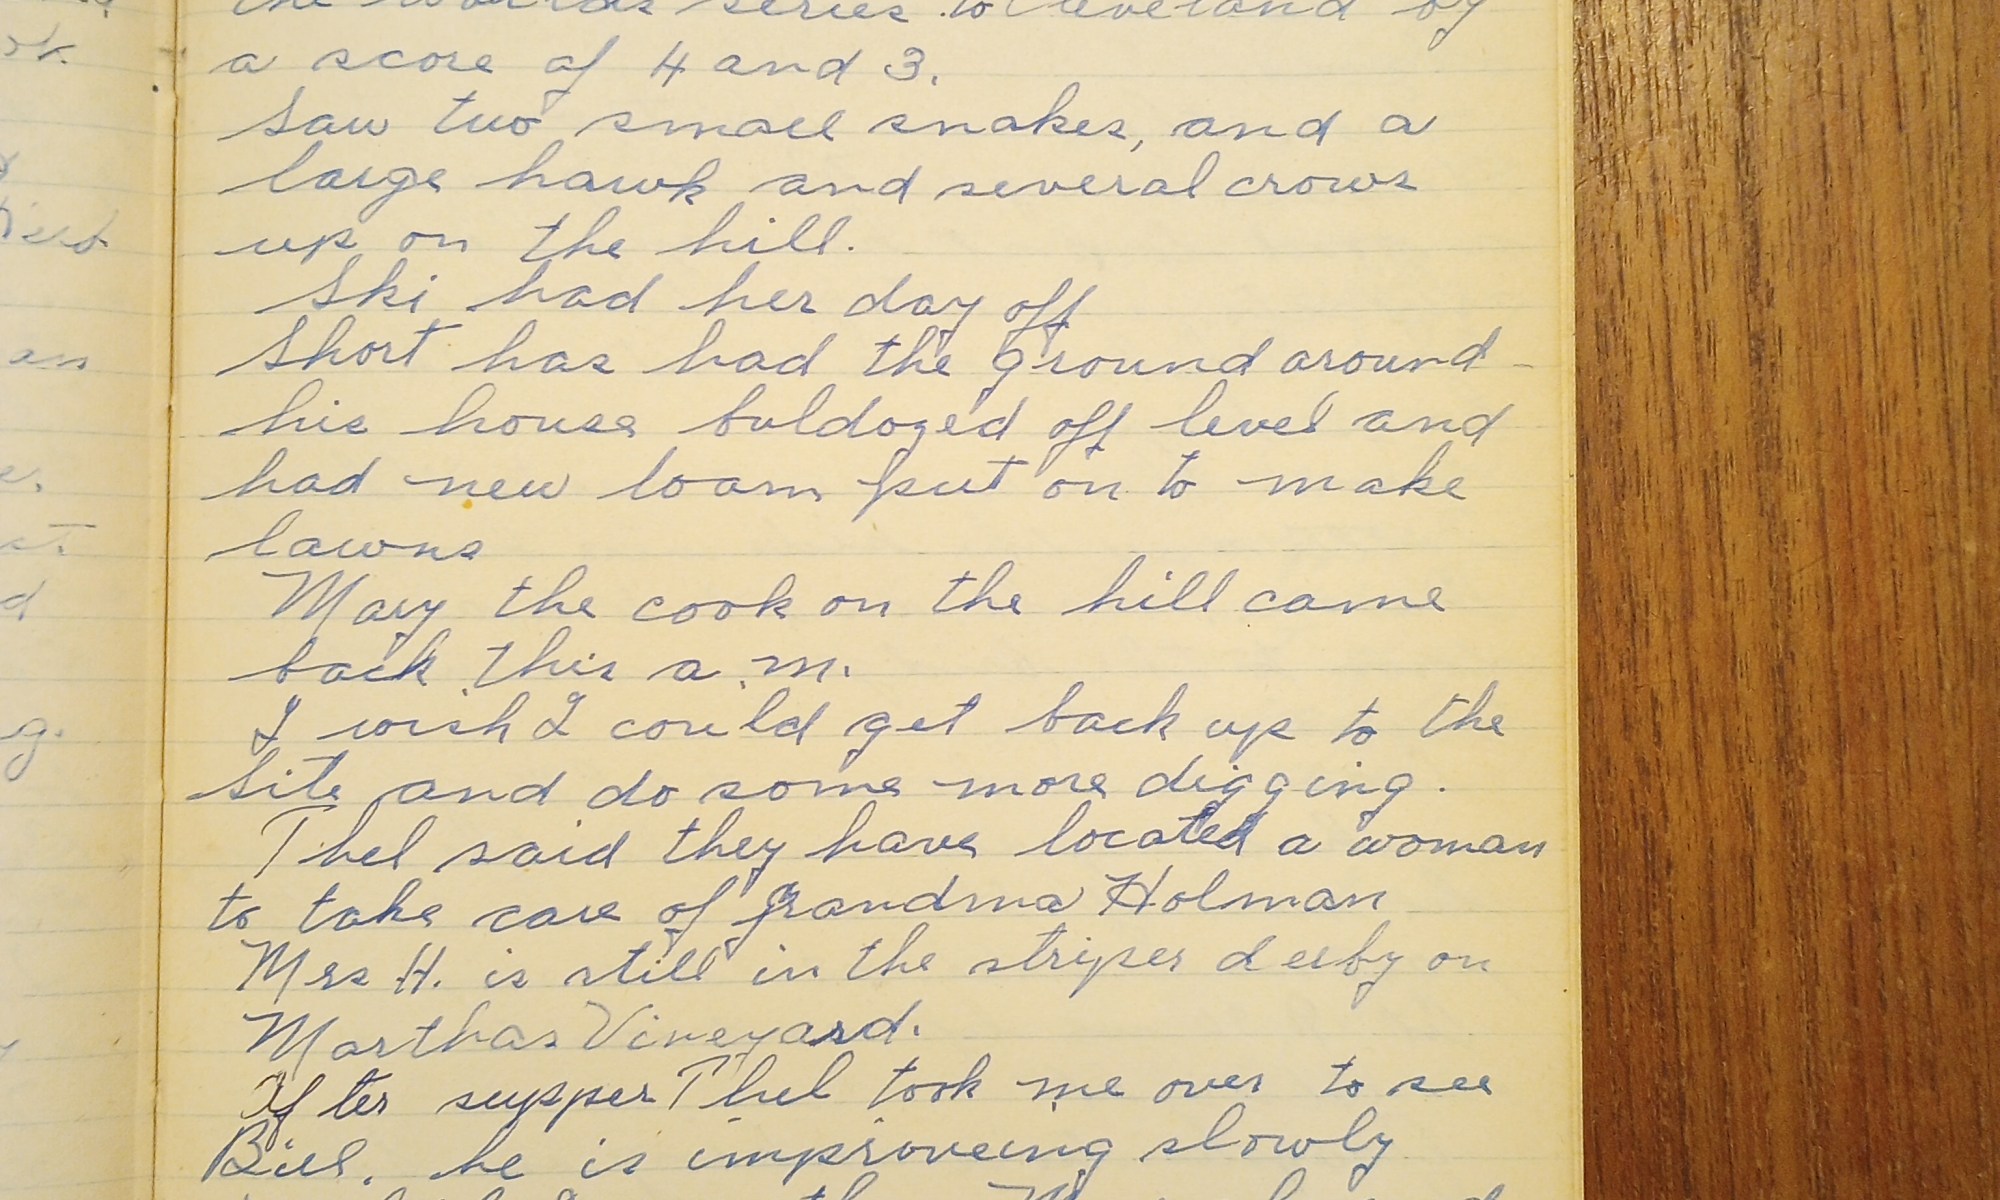 the Worlds series to Cleveland by
a score of 4 and 3.
Saw two small snakes, and a
large hawk and several crows
up on the hill.
Ski had her day off
Short has had the ground around
his house buldozed off level and
had new loam put on to make
lawns
Mary the cook on the hill came
back this a.m.
I wish I could get back up to the
site and do some more digging.
Thel said they have located a woman
to take care of Grandma Holman
Mrs H. is still in the striper derby on
Marthas Vineyard.
After supper Thel took me over to see
Bill. he is improveing slowly